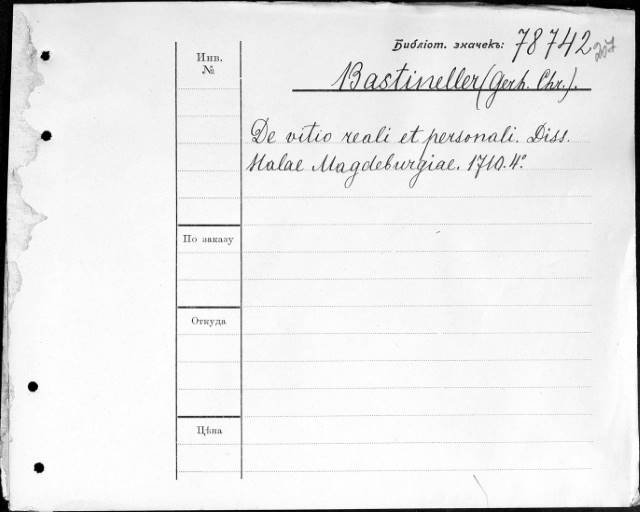 Библіот. значекъ: 78742
207
Инв.
№
Bastineller (Gerh. Chr.).
De vitio reali et personali. Diss.
Halae Magdeburgiae. 1710. 4º
По заказу
Откуда
Цѣна